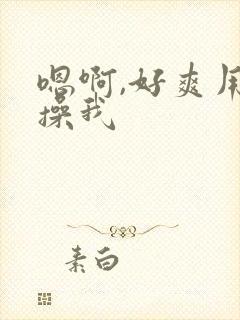 嗯啊,好爽用
操我
素白